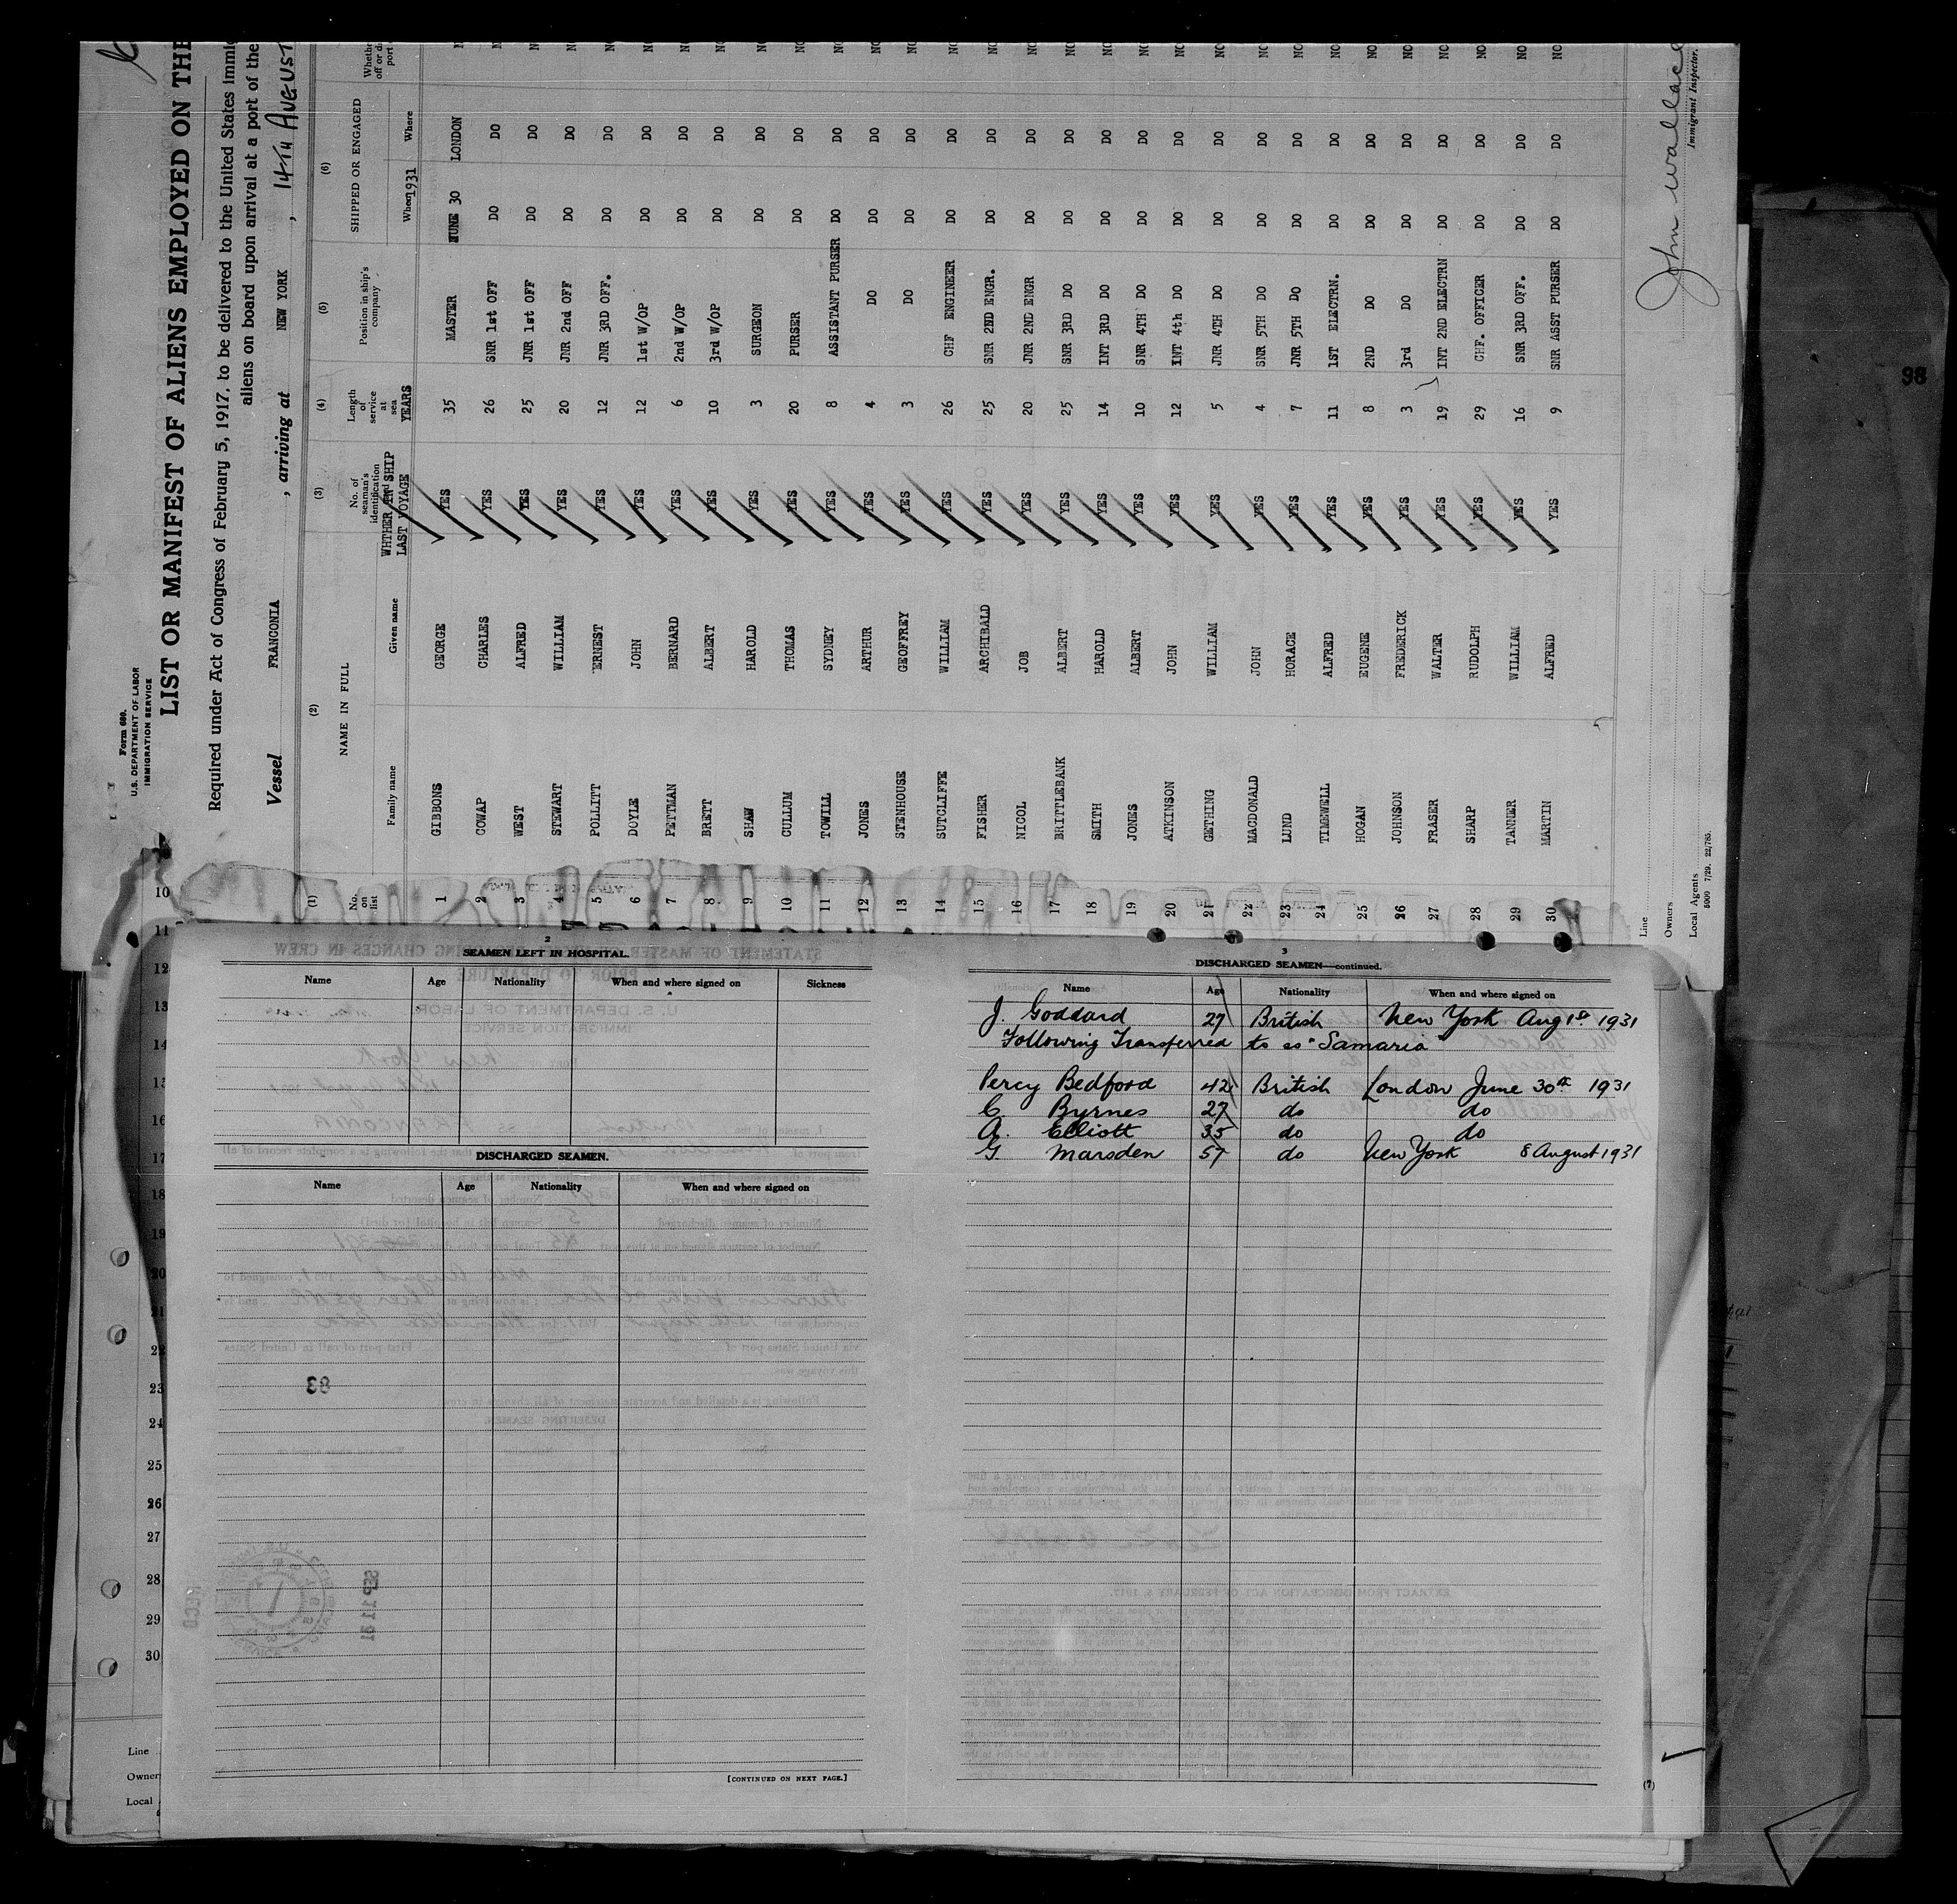 Form 680.
U.S. DEPARTMENT OF LABOR
IMMIGRATION SERVICE
LIST OR MANIFEST OF ALIENS EMPLOYED ON THE
Required under Act of Congress of February 5, 1917, to be delivered to the United States Immi
aliens on board upon arrival at a port of the
Vessel FRANCONIA , arriving at NEW YORK , 14TH AUGUST
(1) (2) (3) (4) (5) (6)
No. on list NAME IN FULL Family name Given name No. of seaman's identification WHTHER IN SHIP LAST VOYAGE Length of service at sea YEARS Position in ship's company SHIPPED OR ENGAGED When 1931 Where
1 GIBBONS GEORGE YES 35 MASTER JUNE 30 LONDON
2 COWAP CHARLES YES 26 SNR 1st OFF DO DO NO
3 WEST ALFRED YES 25 JNR 1st OFF DO DO NO
4 STEWART WILLIAM YES 20 JNR 2nd OFF DO DO NO
5 POLLITT ERNEST YES 12 JNR 3RD OFF. DO DO NO
6 DOYLE JOHN YES 12 1st W/OP DO DO NO
7 PETTMAN BERNARD YES 6 2nd W/OP DO DO NO
8 BRETT ALBERT YES 10 3rd W/OP DO DO NO
9 SHAW HAROLD YES 3 SURGEON DO DO NO
10 CULLUM THOMAS YES 20 PURSER DO DO NO
11 TOWILL SYDNEY YES 8 ASSISTANT PURSER DO DO NO
12 JONES ARTHUR YES 4 DO DO DO NO
13 STENHOUSE GEOFFREY YES 3 DO DO DO NO
14 SUTCLIFFE WILLIAM YES 26 CHF ENGINEER DO DO NO
15 FISHER ARCHIBALD YES 25 SNR 2ND ENGR. DO DO NO
16 NICOL JOB YES 20 JNR 2ND ENGR DO DO NO
17 BRITTLEBANK ALBERT YES 25 SNR 3RD DO DO DO NO
18 SMITH HAROLD YES 14 INT 3RD DO DO DO NO
19 JONES ALBERT YES 10 SNR 4TH DO DO DO NO
20 ATKINSON JOHN YES 12 INT 4th DO DO DO NO
21 GETHING WILLIAM YES 5 JNR 4TH DO DO DO NO
22 MACDONALD JOHN YES 4 SNR 5TH DO DO DO NO
23 LUND HORACE YES 7 JNR 5TH DO DO DO NO
24 TIMEWELL ALFRED YES 11 1ST ELECTRN. DO DO NO
25 HOGAN EUGENE YES 8 2ND DO DO DO NO
26 JOHNSON FREDERICK YES 3 3rd DO DO DO NO
27 FRASER WALTER YES 19 INT 2ND ELECTRN DO DO NO
28 SHARP RUDOLPH YES 29 CHF. OFFICER DO DO NO
29 TANNER WILLIAM YES 16 SNR 3RD OFF. DO DO NO
30 MARTIN ALFRED YES 9 SNR ASST PURSER DO DO NO
Line
Owners
Local Agents
5000 7/29. 22/785.
John Wallace
Immigrant Inspector.
98
10
11
12
13
14
15
16
17
18
19
20
21
22
23
24
25
26
27
28
29
30
Line
Owner
Local
2
SEAMEN LEFT IN HOSPITAL.
Name Age Nationality When and where signed on Sickness
DISCHARGED SEAMEN.
Name Age Nationality When and where signed on
83
SEP 11 31
[CONTINUED ON NEXT PAGE.]
3
DISCHARGED SEAMEN—continued.
Name Age Nationality When and where signed on
J. Goddard 27 British New York Aug 1st 1931
Following Transferred to ss "Samaria"
Percy Bedford 42 British London June 30th 1931
C. Byrnes 27 do do
A. Elliott 35 do do
G. Marsden 57 do New York 8 August 1931
(7)